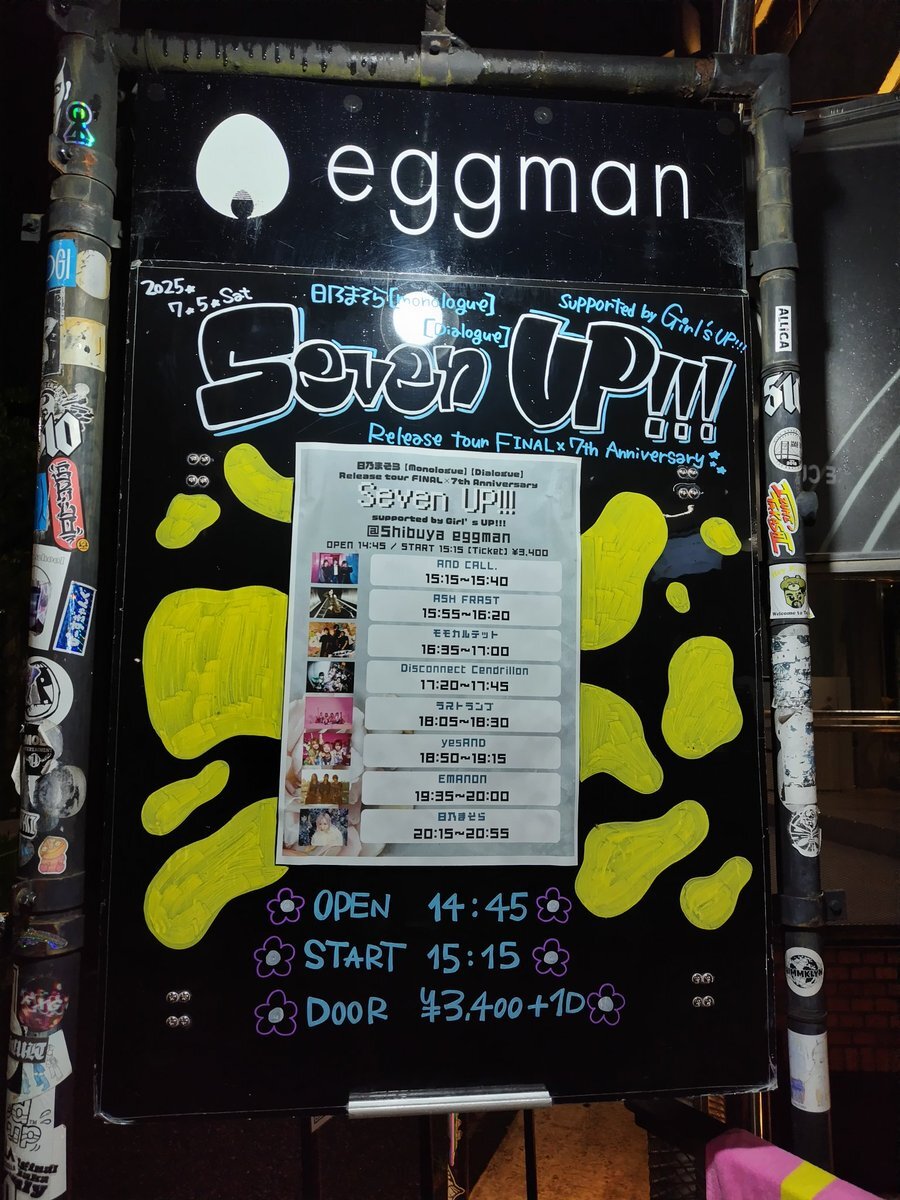 eggman
2025
7.5 Sat
日乃まそら[monologue]
[Dialogue]
Supported by Girl's UP!!!
Seven UP!!!
Release tour FINAL×7th Anniversary
日乃まそら【Monologue】【Dialogue】
Release tour FINAL×7th Anniversary
Seven UP!!!
supported by Girl's UP!!!
@Shibuya eggman
OPEN 14:45 / START 15:15 [Ticket] ¥3,400
AND CALL.
15:15~15:40
ASH FRAST
15:55~16:20
モモカルテット
16:35~17:00
Disconnect Cendrillon
17:20~17:45
ラストランプ
18:05~18:30
yesAND
18:50~19:15
EMANON
19:35~20:00
日乃まそら
20:15~20:55
OPEN 14:45
START 15:15
DOOR ¥3,400+1D
ALLiCA